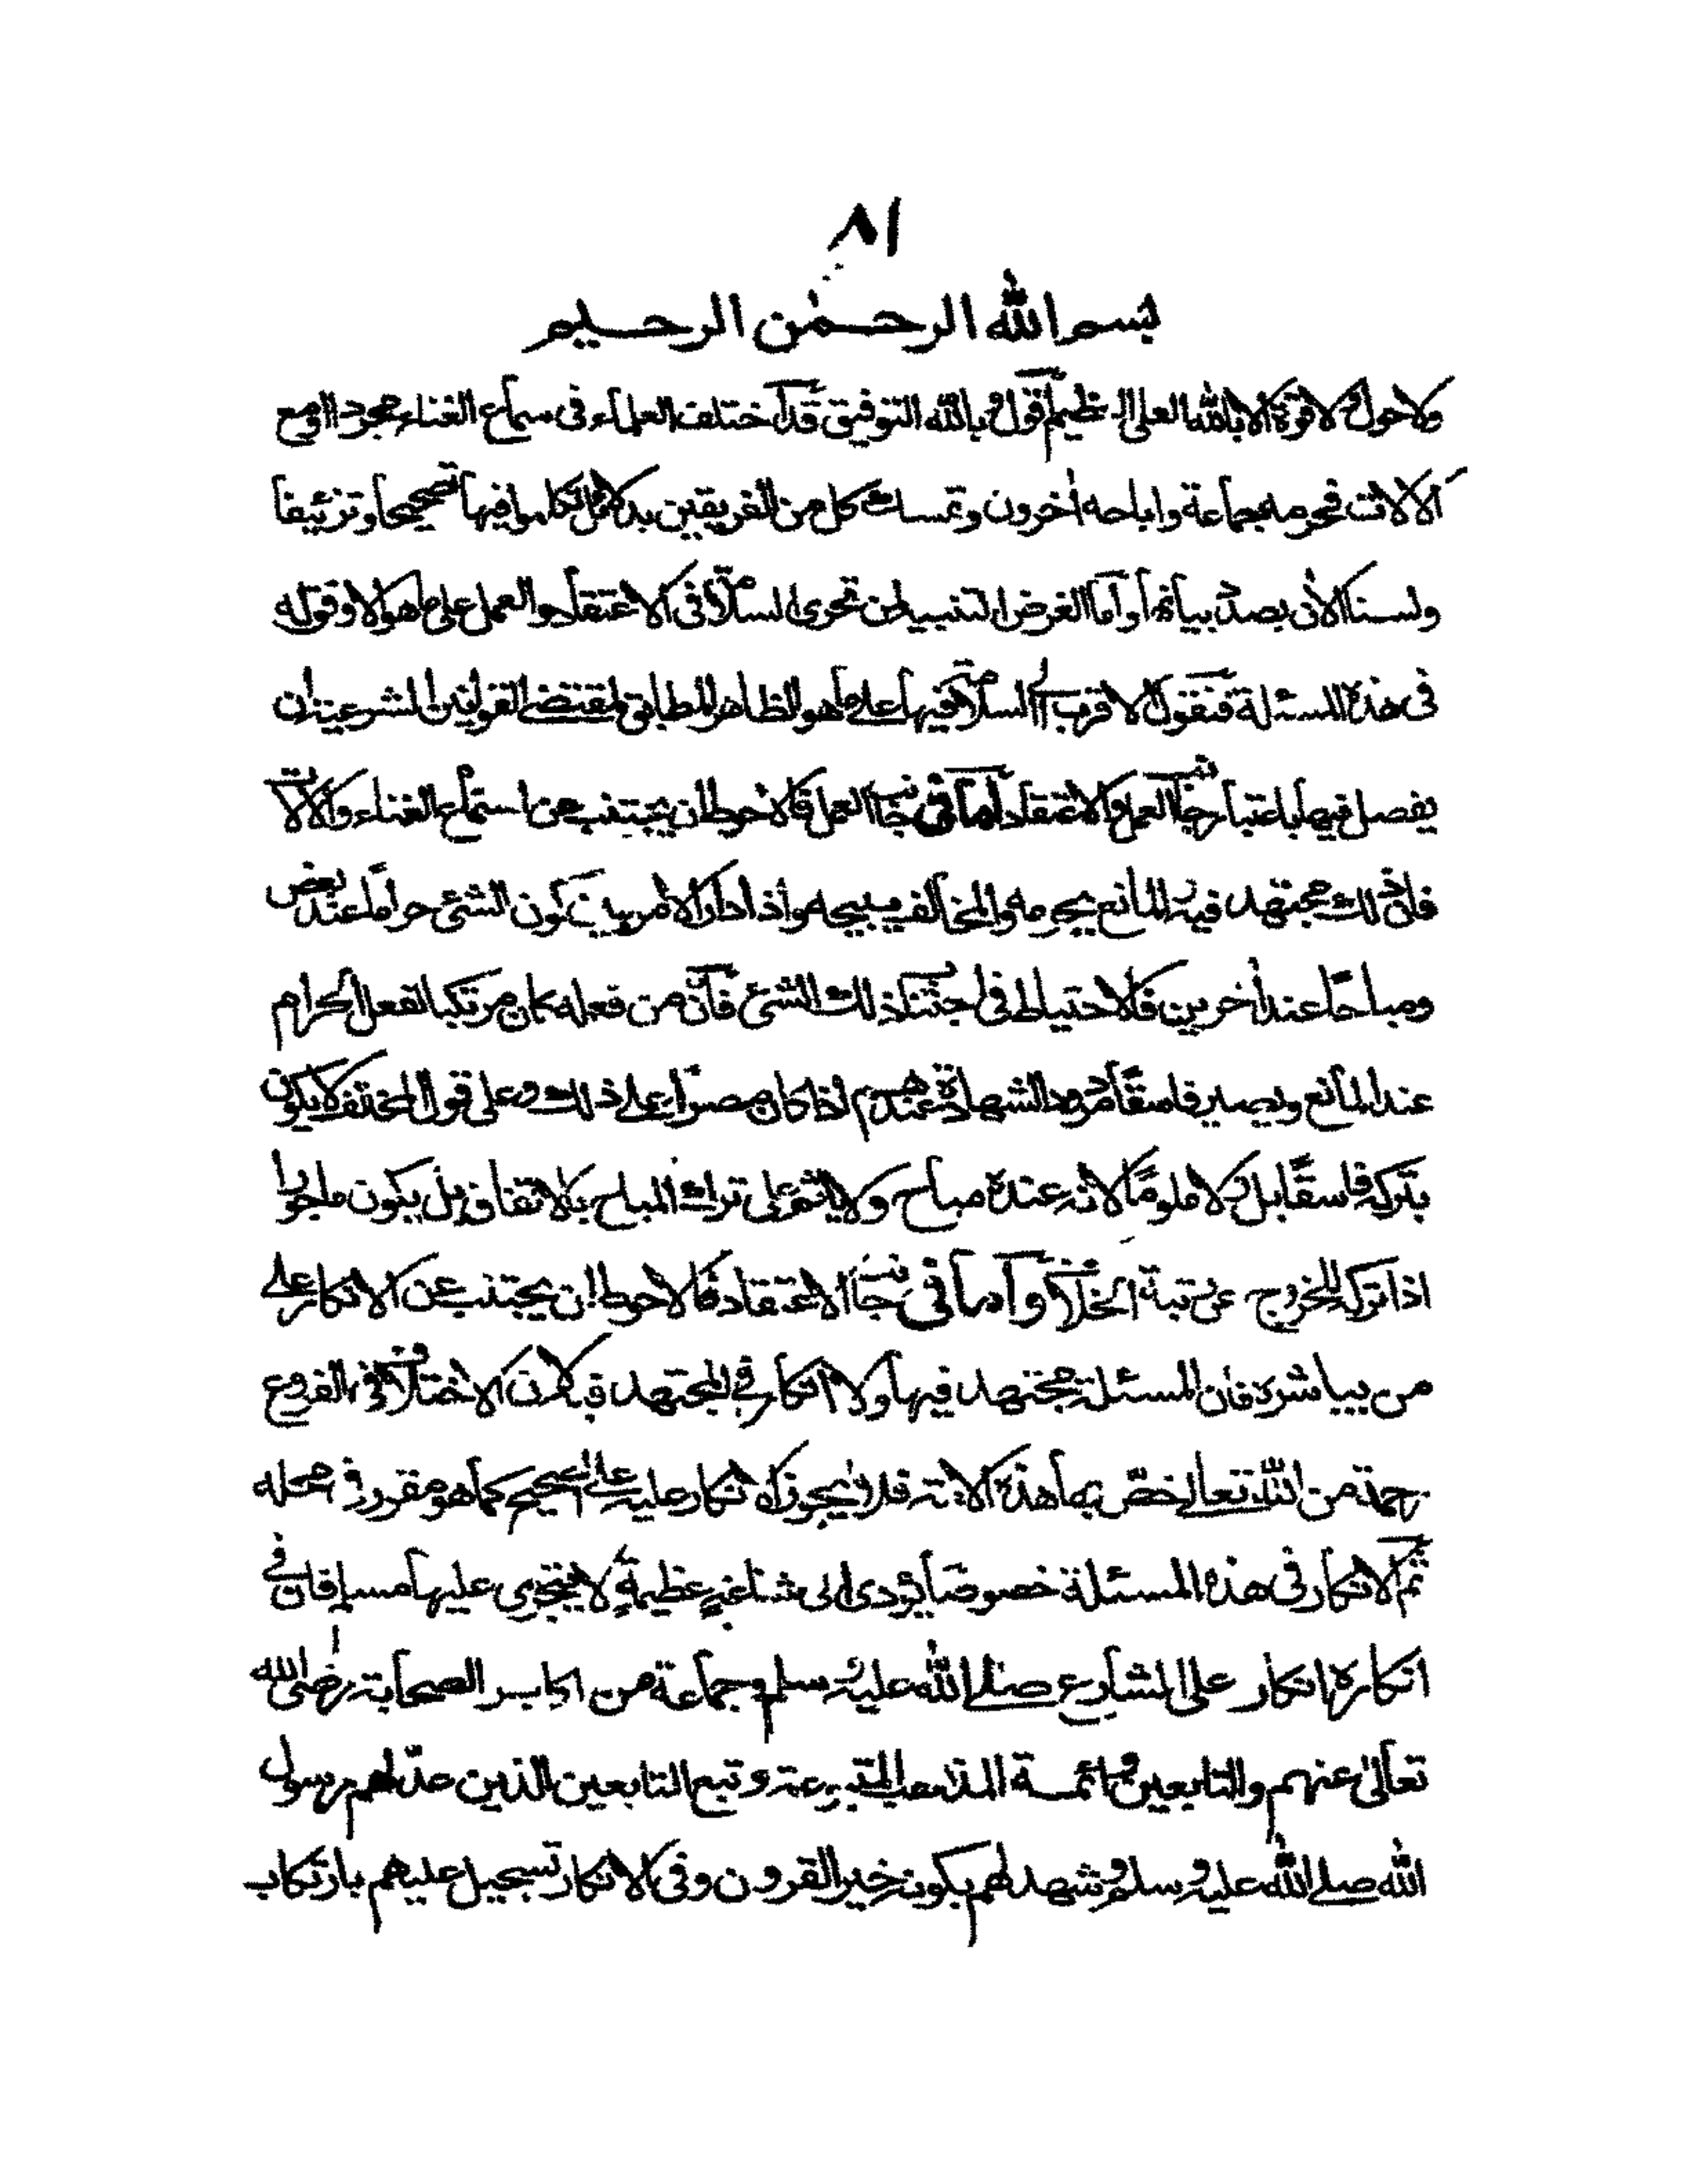 ٨١
بسم الله الرحمٰن الرحيم
ولا حول ولا قوة الا بالله العلى العظيم أقول وبالله التوفيق قد اختلف العلماء فى سماع الغناء مجردا او مع
الآلات فحرمه جماعة واباحه اٰخرون وتمسك كل من الفريقين بدلائل تكلموا فيها تصحيحا وتزئيفا
ولسنا الاٰن بصدد بيانها وانما الغرض التنبيه لمن تحرى السلامة فى الاعتقاد والعمل على ما هو الاوفق له
فى هذه المسئلة فنقول الاقرب الى السلامة فيها على ما هو الظاهر المطابق لمقتضے القوانين الشرعية ان
يفصل فيها باعتبار جانب العمل والاعتقاد اما فى جانب العمل فالاحوط ان يجتنب عن استماع الغناء والآلات
فان ذلك مجتهد فيه المانع يحرمه والمخالف يبيحه واذا دار الامر بين كون الشئ حراماً عند بعض
ومباحًا عند اٰخرين فالاحتياط فى اجتناب ذلك الشئ فان من فعله كان مرتكبا لفعل الحرام
عند المانع ويصير فاسقًا مردود الشهادة عندهم اذا كان مصرّا على ذلك وعلى قول المخالف لا يكون
بتركه فاسقًا بل ولا ملومًا لانه عنده مباح ولا ياثم على ترك المباح بالاتفاق بل يكون ماجورا
اذا تركه للخروج عن رتبة الخلاف وأما فى جانب الاعتقاد فالاحوط ان يجتنب عن الانكار على
من يباشره فان المسئلة مجتهد فيها ولا انكار فى المجتهد فيه لان الاختلاف فى الفروع
رحمة من الله تعالى خصّ بها هذه الامة فلا يجوز الانكار عليه على الصحيح كما هو مقرر فى محله
ثم الانكار فى هذه المسئلة خصوصًا يؤدى الى شناعةٍ عظيمةٍ لا يجترى عليها مسلم فان فى
انكاره انكار على الشارع صلے الله عليه وسلم وجماعة من اكابر الصحابة رضى الله
تعالىٰ عنهم والتابعين وائمة المذاهب المتبوعة وتبع التابعين الذين عدّلهم رسول
الله صلے الله عليه وسلم وشهد لهم بكونه خير القرون وفى الانكار تسجيل عليهم بارتكاب